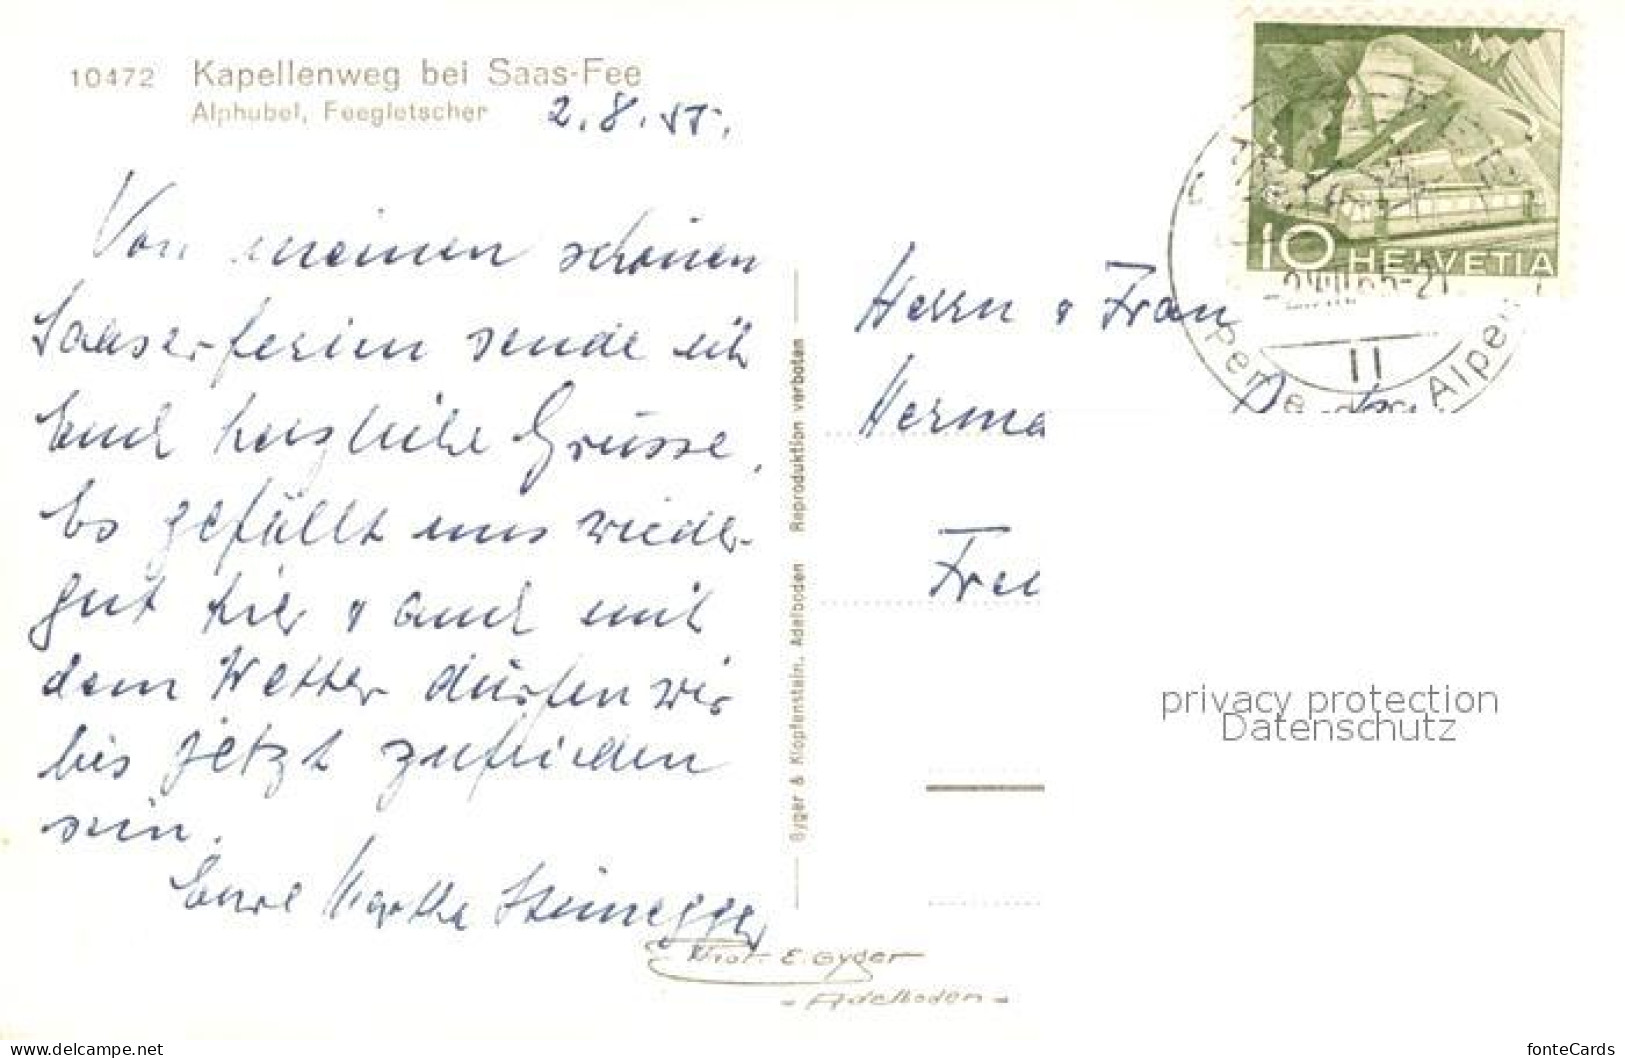 10472 Kapellenweg bei Saas-Fee
Alphubel, Feegletscher
2.8.55.
Von meinen schönen
Saaserferien sende ich
Euch herzliche Grüsse,
Es gefällt uns wieder
gut hier & auch mit
dem Wetter dürfen wir
bis jetzt zufrieden
sein.
Eure Martha Steinegger
Phot. E. Gyger
- Adelboden -
Gyger & Klopfenstein, Adelboden Reproduktion verboten
10 HELVETIA
II
Alpen
Herrn & Frau
Herma
Frei
privacy protection
Datenschutz
www.delcampe.net/user/bartko-reher
fonteCards